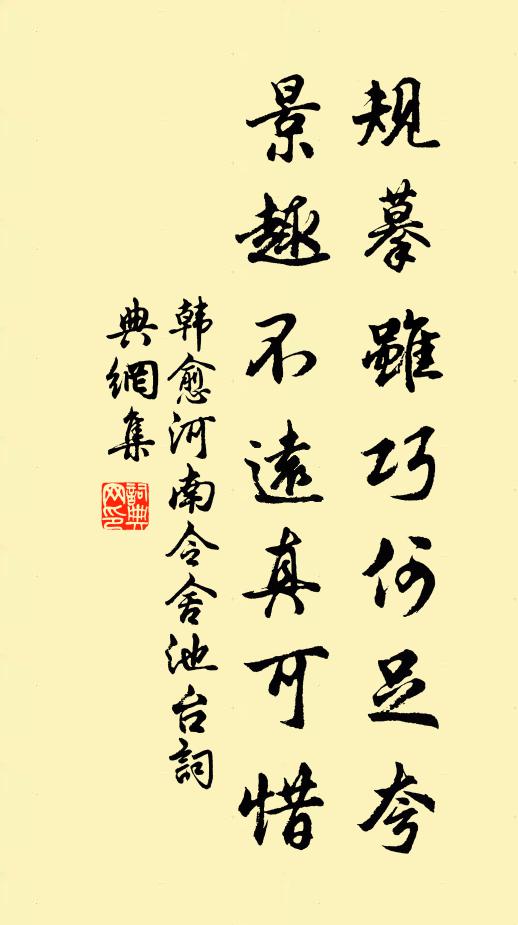 規摹雖巧何足夸
景趣不遠真可惜
韩愈河南令舍池台詞
典網集
詞典
网印